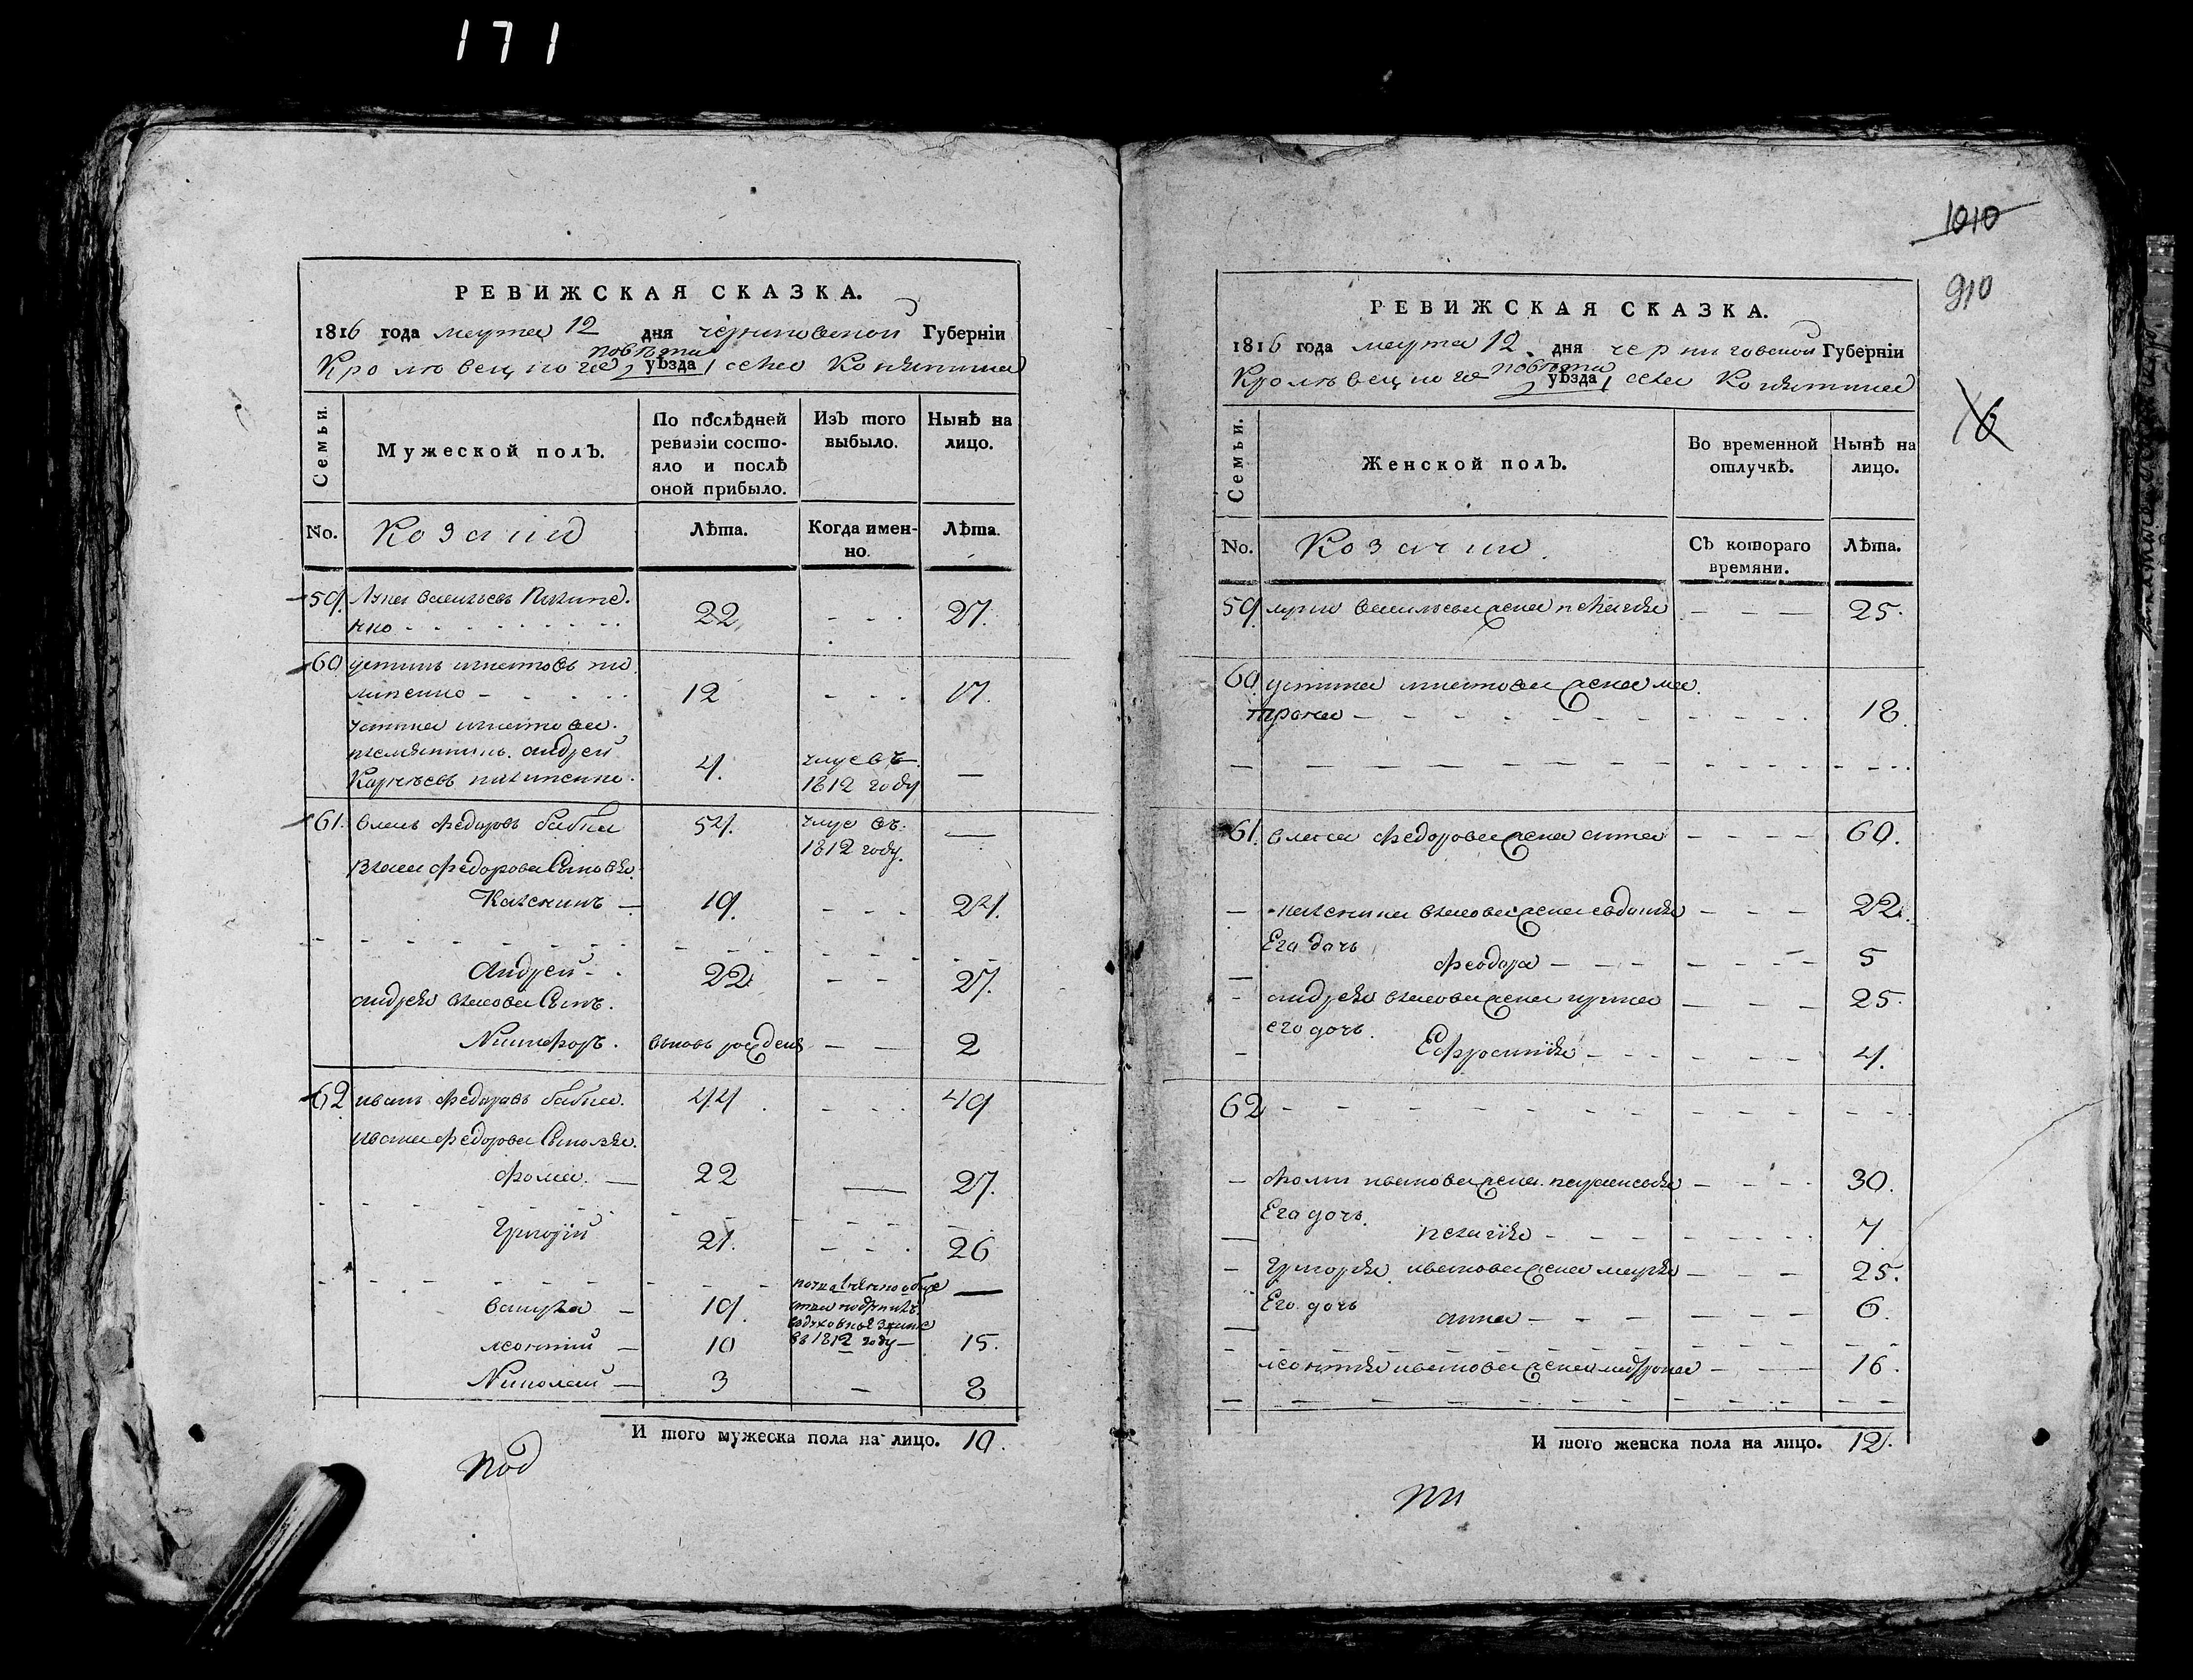 171
РЕВИЖСКАЯ СКАЗКА.
1816 года марта 12 дня черниговской Губерніи
повѣта
Кролевецкого уѣзда, села
Семьи.
Мужеской полъ.
По послѣдней ревизіи состояло и послѣ оной прибыло.
Изъ того выбыло.
Нынѣ на лицо.
No.
Козаки
Лѣта.
Когда именно.
Лѣта.
59. Лука васильевъ
22 27.
60 устинъ игнатовъ пи
липенко 12 17.
устина игнатова
племянникъ андрей
4. умре въ
1812 году
61. власъ федоровъ бабка 54. умре въ
1812 году.
власа федорова Сыновья
Каленикъ 19. 24.
Андрей 22 27.
андрея власова Сынъ.
Никифоръ. вновь рожденъ 2
62 иванъ федоровъ бабка. 44 49
ивана федорова Сыновья.
фома. 22 27.
Григорій 21. 26
19.
въ 1812 году
леонтій 10 15.
Николай 3 8
И того мужеска пола на лицо. 10.
под
1010
910
6
РЕВИЖСКАЯ СКАЗКА.
1816 года марта 12 дня черниговской Губерніи
повѣта
Кролевецкого уѣзда, села
Семьи.
Женской полъ.
Во временной отлучкѣ.
Нынѣ на лицо.
No.
Козачки.
Съ котораго времяни.
Лѣта.
59. луки васильева жена пелагея 25.
60. устина игнатова жена ма
трона 18.
61. власа федорова жена анна 60.
каленика власова жена евдокія 22.
Его дочь
феодора 5
андрея власова жена ирина 25.
его дочь.
Ефросинія 4.
62
фомы иванова жена параскевія 30.
Его дочь.
пелагія 7
Григорія иванова жена марія 25.
Его дочь
анна 6.
леонтія иванова жена матрона 16.
И того женска пола на лицо. 12.